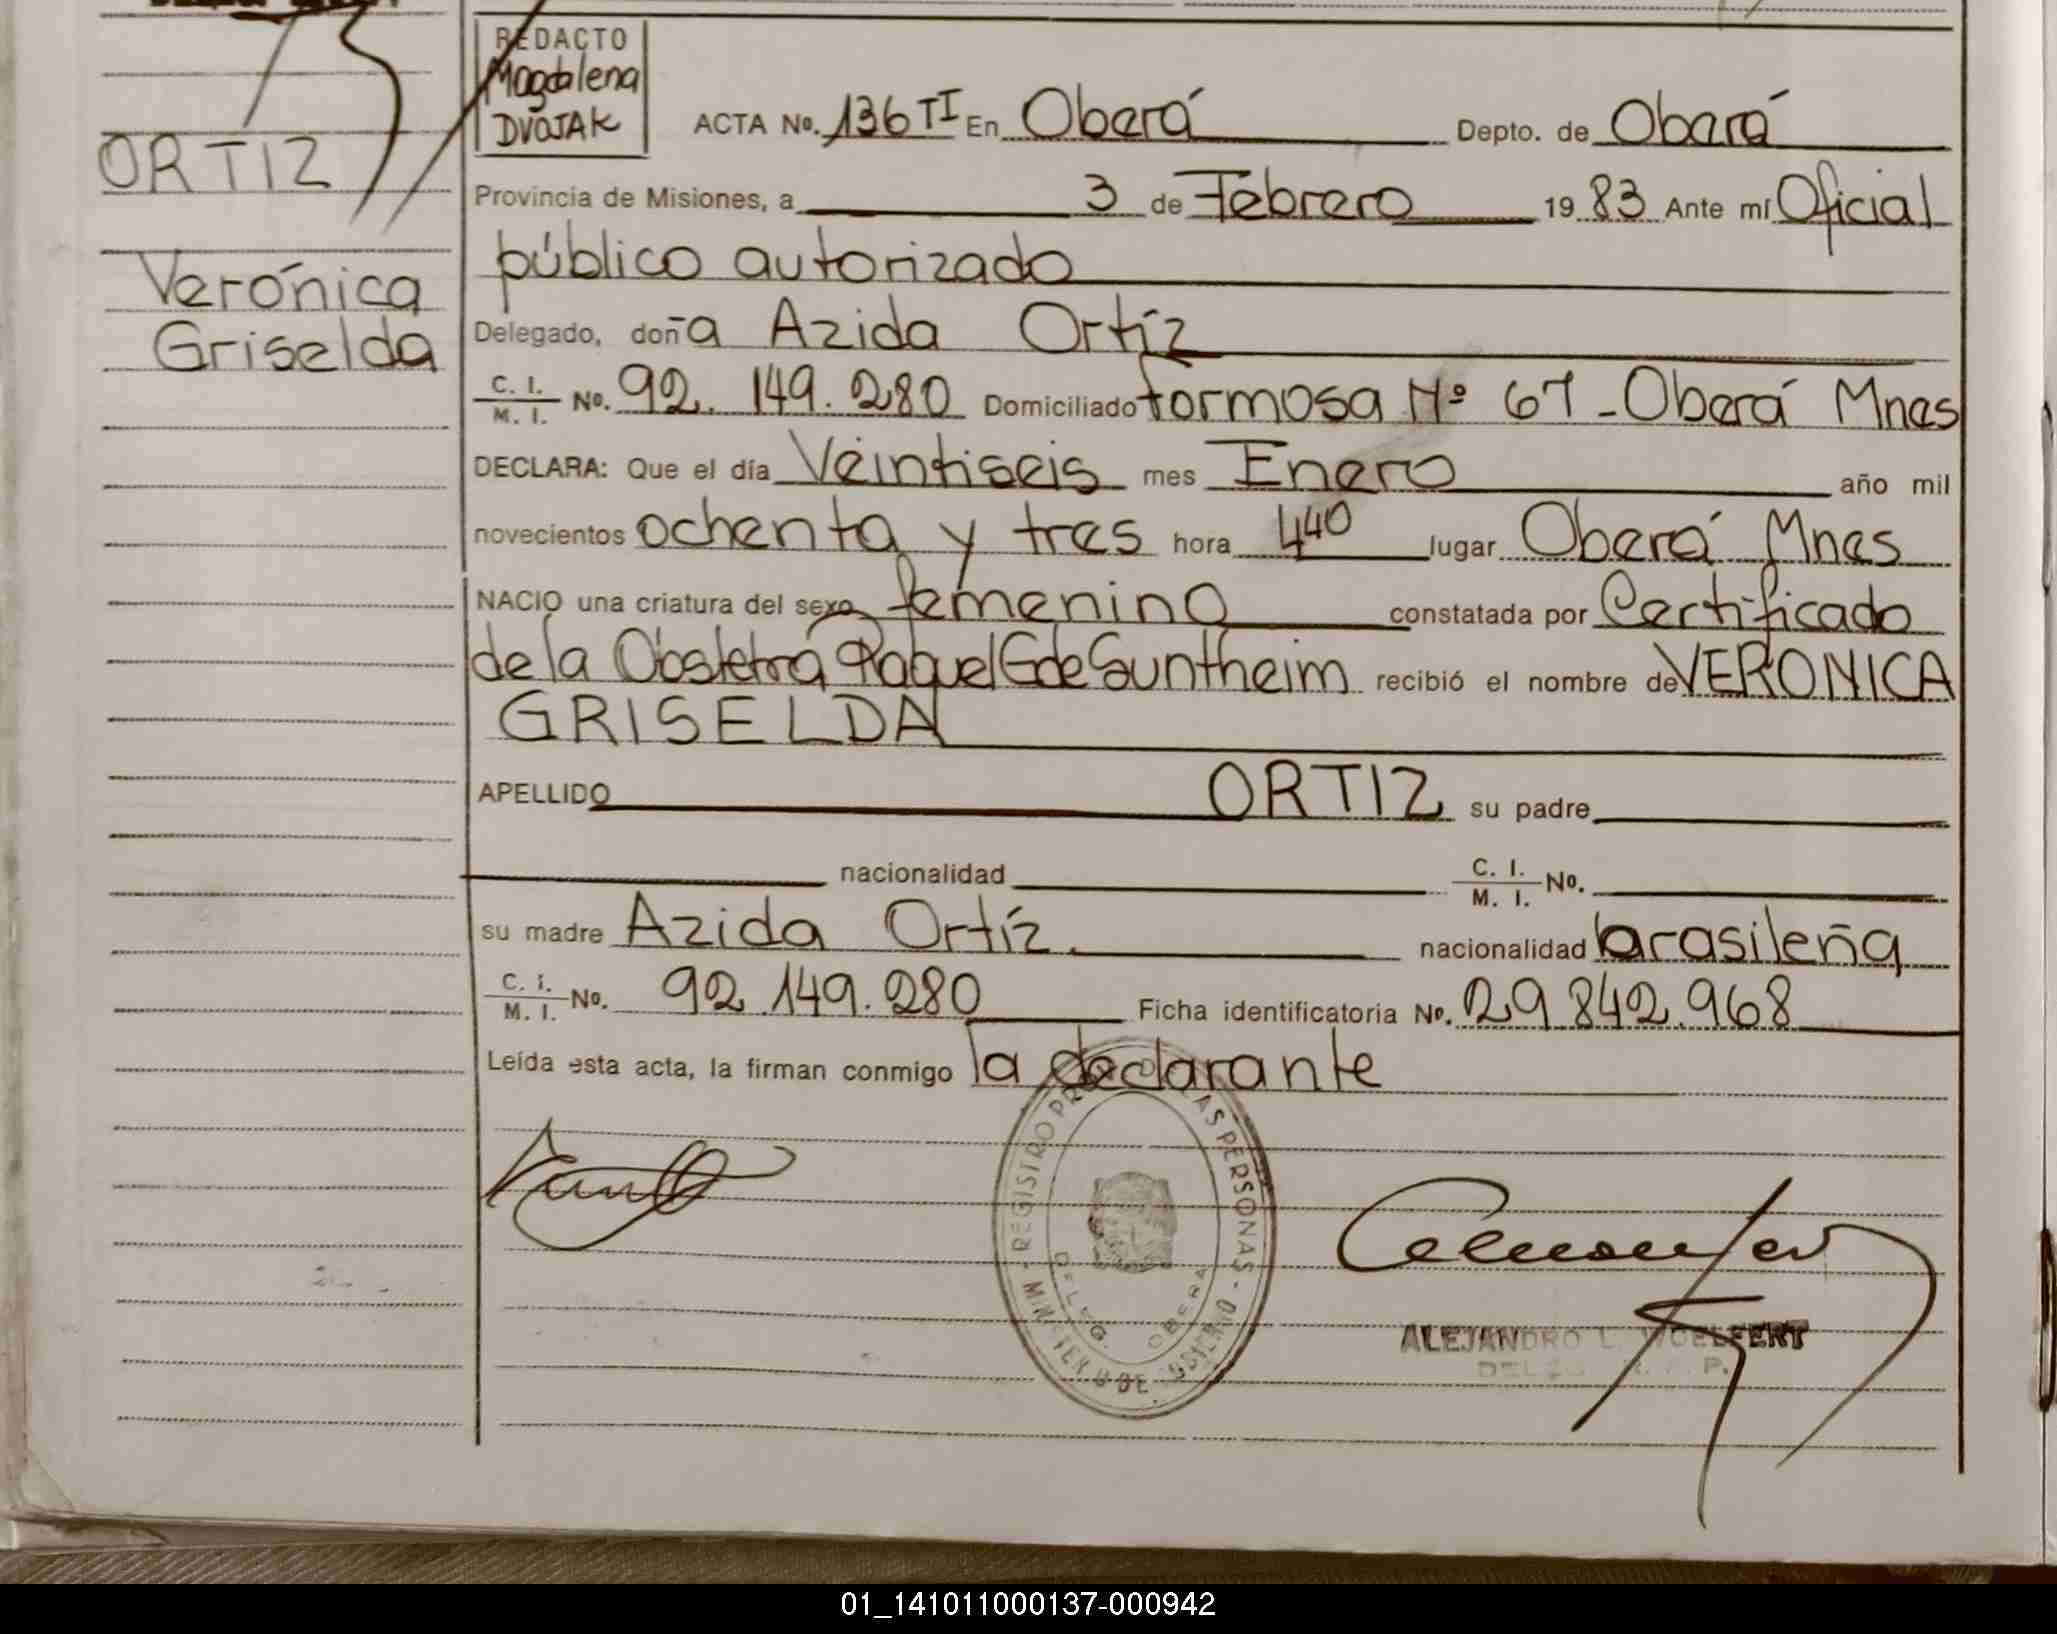 REDACTO
Magdalena
DVOJAK
ACTA No. 136 TI En Oberá Depto. de Oberá
ORTIZ
Provincia de Misiones, a 3 de Febrero 19 83 Ante mí Oficial
público autorizado
Verónica
Griselda
Delegado, doña Azida Ortíz
C. I. / M. I. No. 92.149.280 Domiciliado formosa Nº 67 - Oberá Mnes
DECLARA: Que el día Veintiseis mes Enero año mil
novecientos ochenta y tres hora 4 40 lugar Oberá Mnes
NACIO una criatura del sexo femenino constatada por Certificado
de la Obstetra Raquel G de Suntheim recibió el nombre de VERONICA
GRISELDA
APELLIDO ORTIZ su padre
nacionalidad C. I. / M. I. No.
su madre Azida Ortíz. nacionalidad brasileña
C. I. / M. I. No. 92.149.280 Ficha identificatoria No. 29.842.968
Leída esta acta, la firman conmigo la declarante
REGISTRO LAS PERSONAS - MINISTERIO DE GOBIERNO
DELEG. OBERA
ALEJANDRO L. WOELFERT
01_141011000137-000942